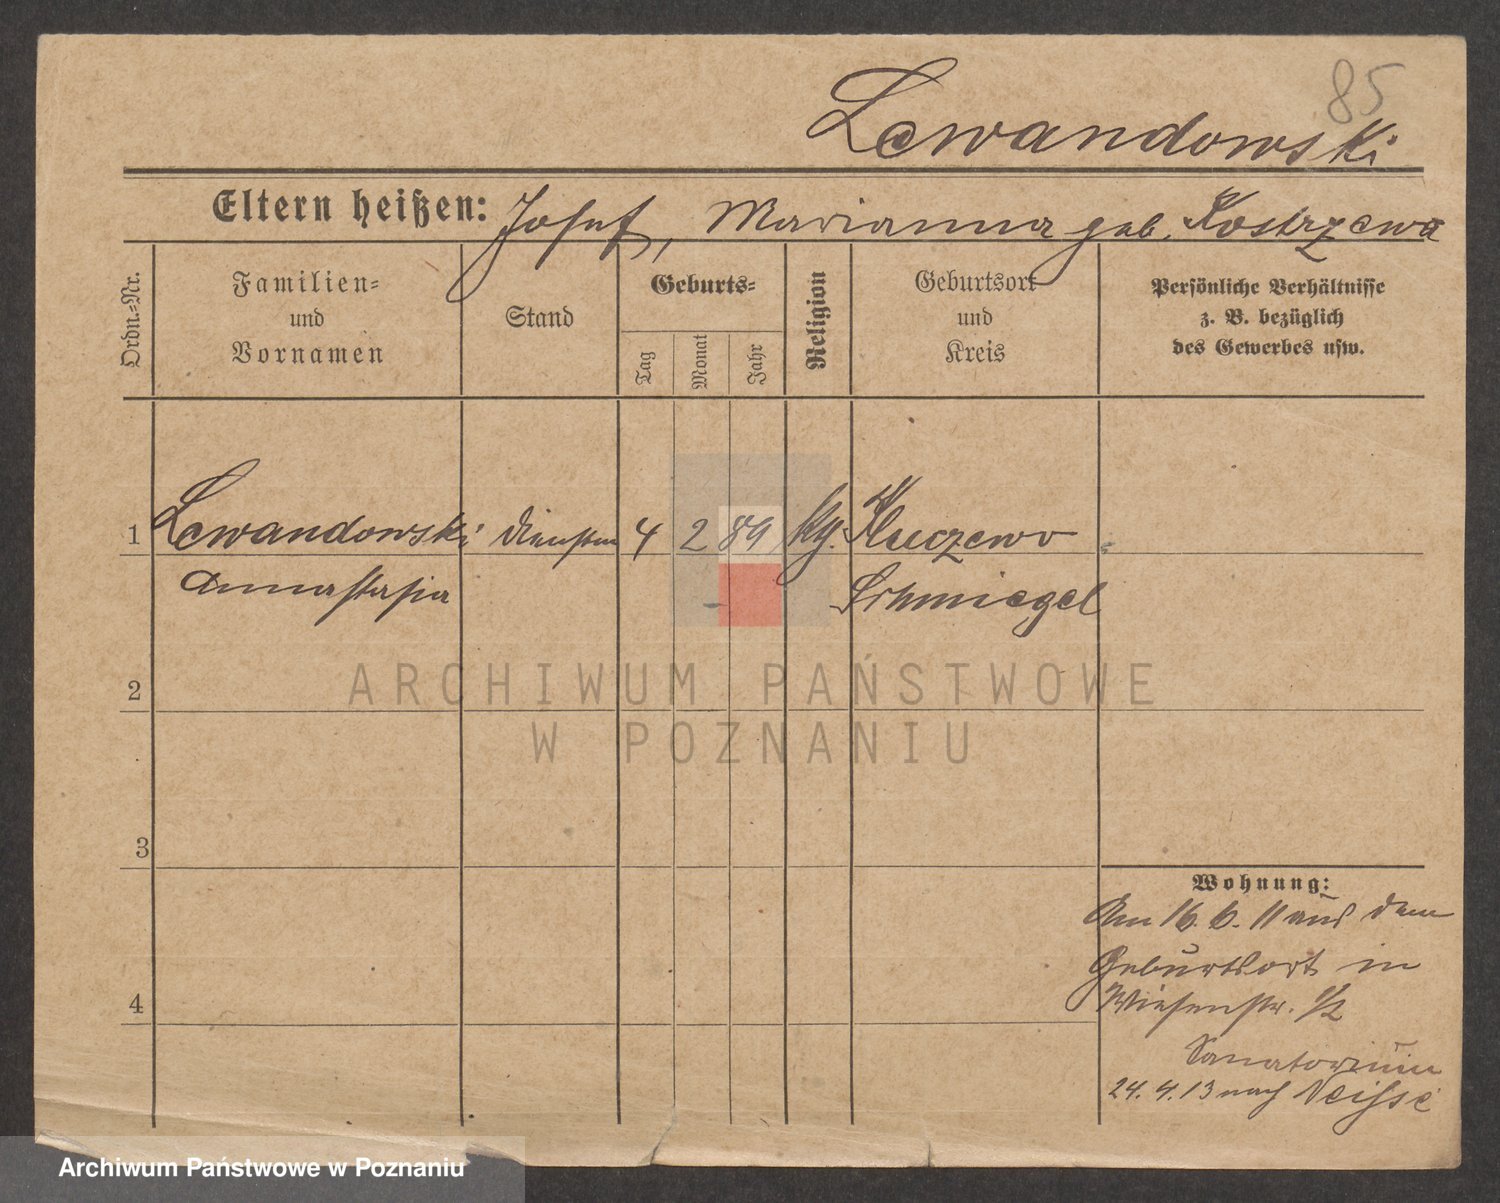 85
Lewandowski
Eltern heißen: Josef, Marianna geb. Kostrzewa
Ordn.-Nr.
Familien-
und
Vornamen
Stand
Geburts-
Tag
Monat
Jahr
Religion
Geburtsort
und
Kreis
Persönliche Verhältnisse
z. B. bezüglich
des Gewerbes usw.
1 Lewandowski 4 2 89 Kluczewo
Annastasia Schmiegel
ARCHIWUM PAŃSTWOWE
W POZNANIU
2
3
4
Wohnung:
Am 16. 6. 11 aus dem
Geburtsort in
Wiesenstr. 1/2
Sanatorium
24. 4. 13 nach Neisse
Archiwum Państwowe w Poznaniu